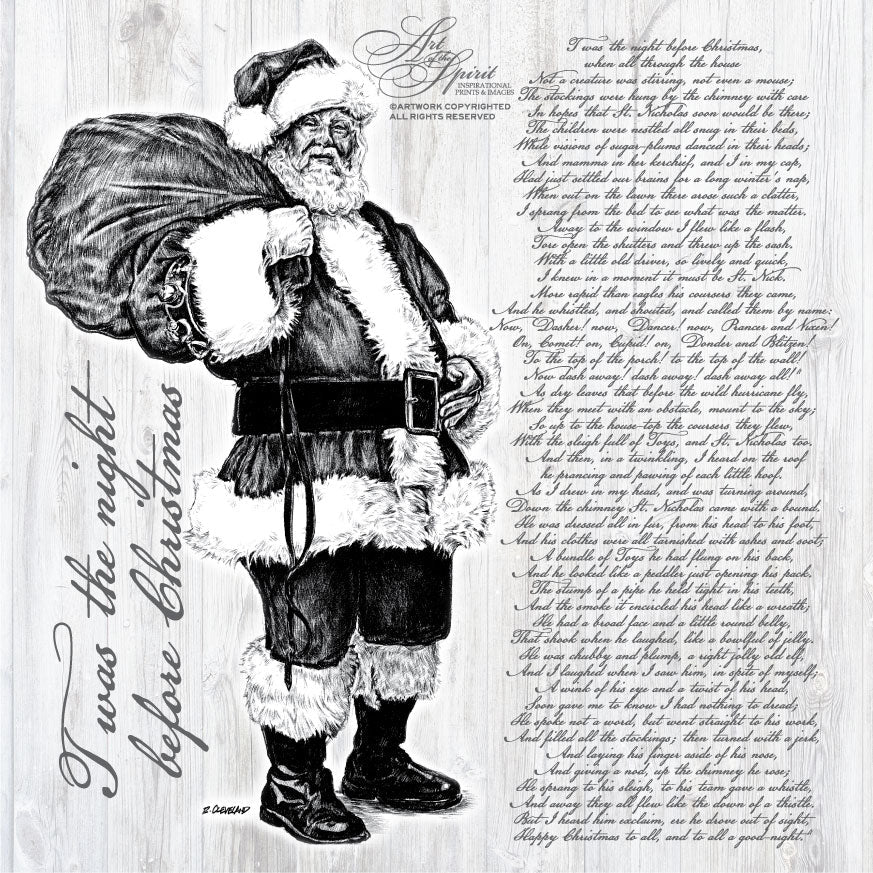 Art
of the
Spirit
INSPIRATIONAL
PRINTS & IMAGES
©ARTWORK COPYRIGHTED
ALL RIGHTS RESERVED
T'was the night
before Christmas
R. CLEVELAND
T'was the night before Christmas,
when all through the house
Not a creature was stirring, not even a mouse;
The stockings were hung by the chimney with care
In hopes that St. Nicholas soon would be there;
The children were nestled all snug in their beds,
While visions of sugar-plums danced in their heads;
And mamma in her kerchief, and I in my cap,
Had just settled our brains for a long winter's nap,
When out on the lawn there arose such a clatter,
I sprang from the bed to see what was the matter.
Away to the window I flew like a flash,
Tore open the shutters and threw up the sash.
With a little old driver, so lively and quick,
I knew in a moment it must be St. Nick.
More rapid than eagles his coursers they came,
And he whistled, and shouted, and called them by name:
Now, Dasher! now, Dancer! now, Prancer and Vixen!
On, Comet! on, Cupid! on, Donder and Blitzen!
To the top of the porch! to the top of the wall!
Now dash away! dash away! dash away all!"
As dry leaves that before the wild hurricane fly,
When they meet with an obstacle, mount to the sky;
So up to the house-top the coursers they flew,
With the sleigh full of Toys, and St. Nicholas too.
And then, in a twinkling, I heard on the roof
he prancing and pawing of each little hoof.
As I drew in my head, and was turning around,
Down the chimney St. Nicholas came with a bound.
He was dressed all in fur, from his head to his foot,
And his clothes were all turnished with ashes and soot;
A bundle of Toys he had flung on his back,
And he looked like a peddler just opening his pack.
The stump of a pipe he held tight in his teeth,
And the smoke it encircled his head like a wreath;
He had a broad face and a little round belly,
That shook when he laughed, like a bowlful of jelly.
He was chubby and plump, a right jolly old elf,
And I laughed when I saw him, in spite of myself;
A wink of his eye and a twist of his head,
Soon gave me to know I had nothing to dread;
He spoke not a word, but went straight to his work,
And filled all the stockings; then turned with a jerk,
And laying his finger aside of his nose,
And giving a nod, up the chimney he rose;
He sprang to his sleigh, to his team gave a whistle,
And away they all flew like the down of a thistle.
But I heard him exclaim, ere he drove out of sight,
Happy Christmas to all, and to all a good-night."